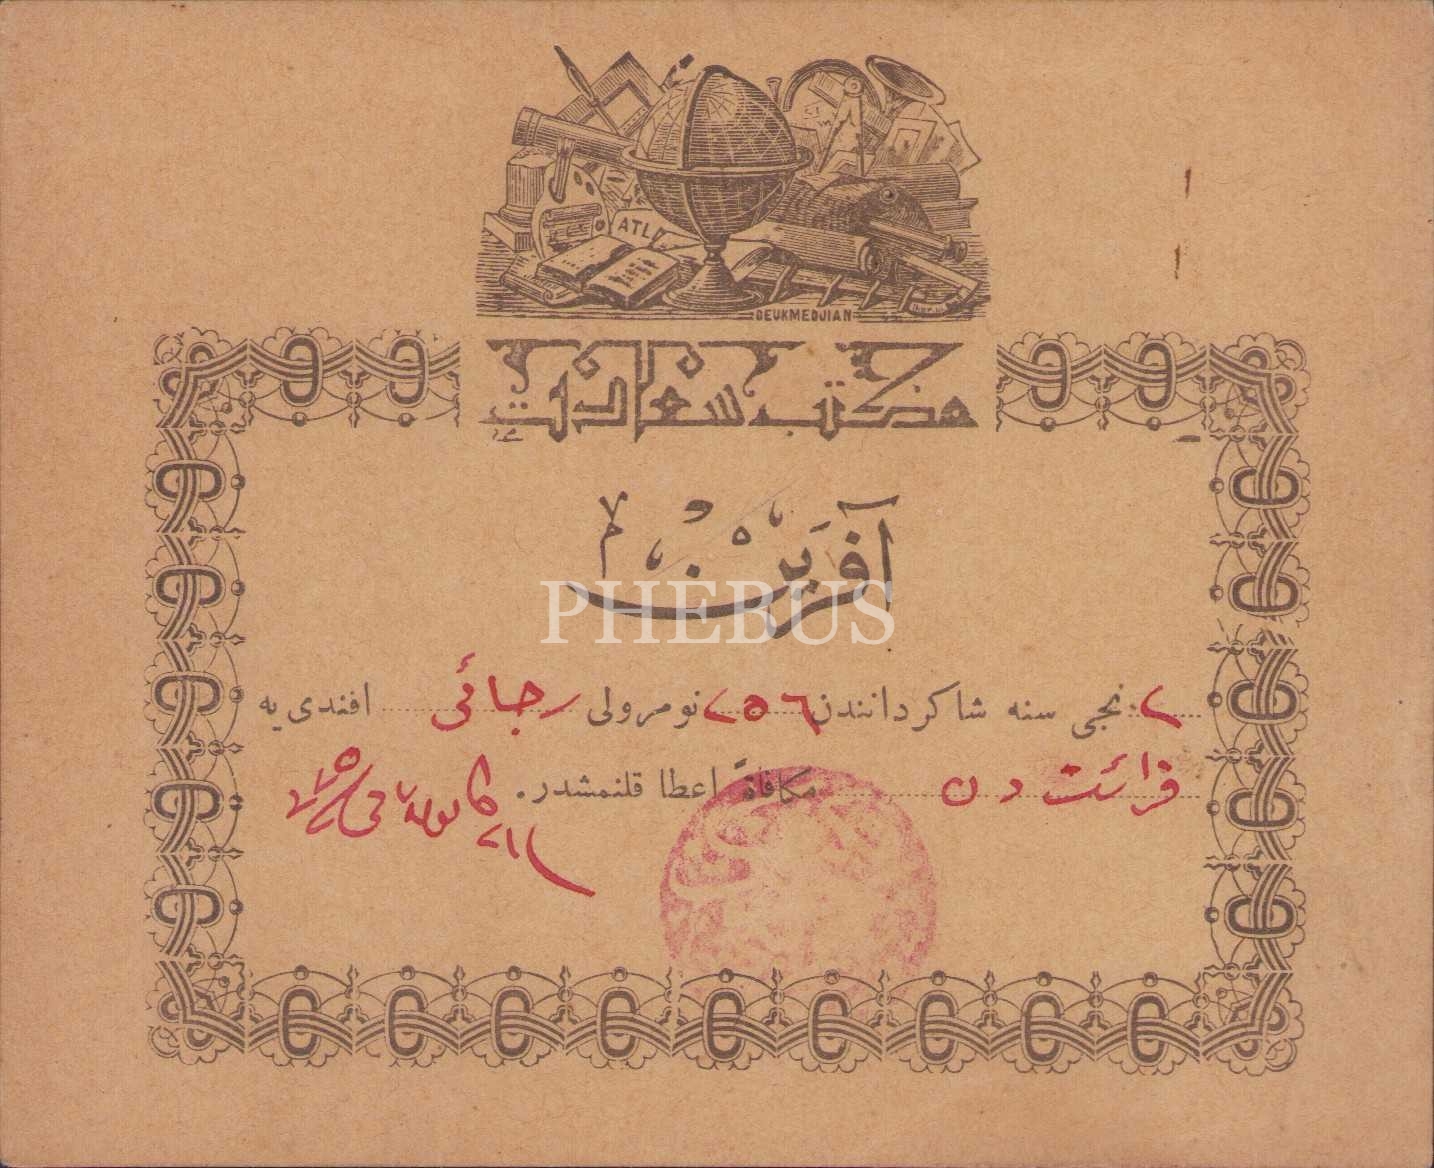 ATL
DEUKMEDJIAN
مكتب سعادت
آفرين
٢ نجی سنه شاكردانندن ٢٥٦ نومرولی رجائی افندی يه
قرائت دن مكافاةً اعطا قلنمشدر.
PHEBUS